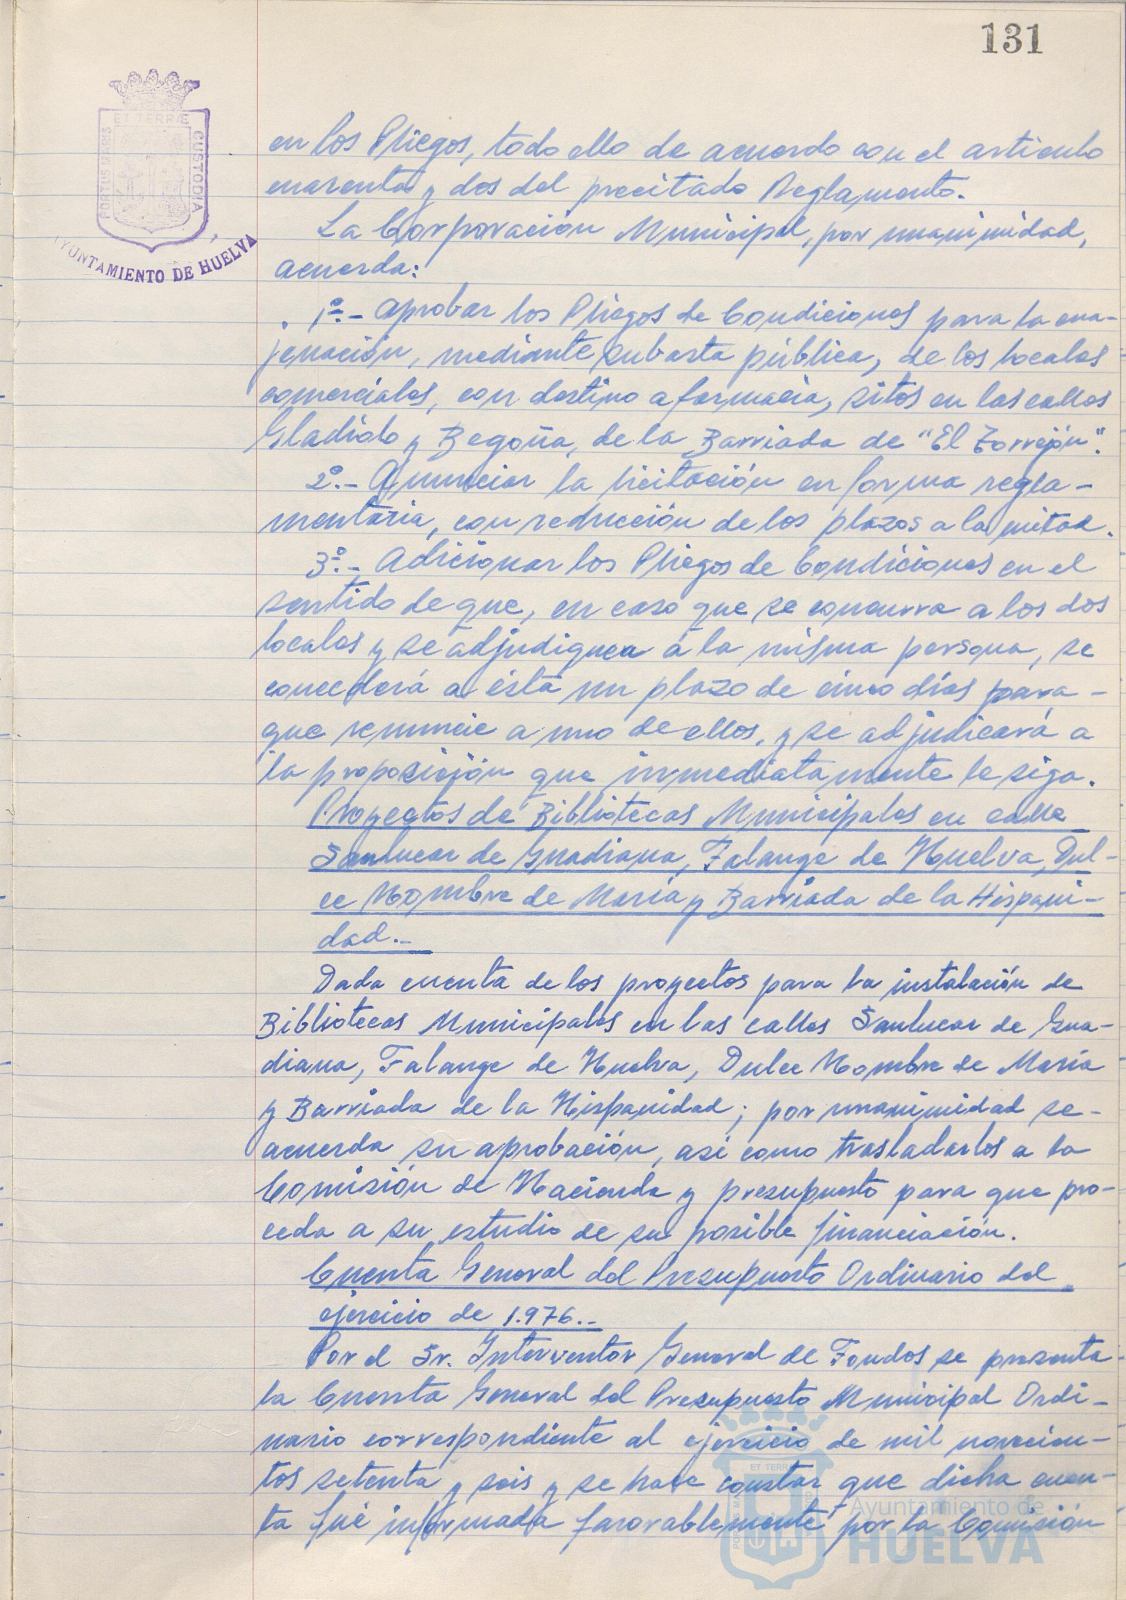 131
ET TERRÆ
PORTUS MARIS
CUSTODIA
AYUNTAMIENTO DE HUELVA
en los Pliegos, todo ello de acuerdo con el articulo
cuarenta y dos del precitado Reglamento.
La Corporación Municipal, por unanimidad,
acuerda:
1º.- Aprobar los Pliegos de Condiciones para la ena-
jenación, mediante subasta pública, de los locales
comerciales, con destino a farmacia, sitos en las calles
Gladiolo y Begoña, de la Barriada de "El Torrejón".
2º.- Anunciar la licitación en forma regla-
mentaria, con reducción de los plazos a la mitad.
3º.- Adicionar los Pliegos de Condiciones en el
sentido de que, en caso que se concurra a los dos
locales y se adjudiquen a la misma persona, se
concederá a ésta un plazo de cinco días para-
que renuncie a uno de ellos, y se adjudicará a
la proposición que inmediatamente le siga.
Proyectos de Bibliotecas Municipales en calle
Sanlucar de Guadiana, Falange de Huelva, Dul-
ce Nombre de María y Barriada de la Hispani-
dad.-
Dada cuenta de los proyectos para la instalación de
Bibliotecas Municipales en las calles Sanlucar de Gua-
diana, Falange de Huelva, Dulce Nombre de María
y Barriada de la Hispanidad; por unanimidad se-
acuerda su aprobación, así como trasladarlos a la
Comisión de Hacienda y presupuesto para que pro-
ceda a su estudio de su posible financiación.
Cuenta General del Presupuesto Ordinario del
ejercicio de 1.976.-
Por el Sr. Interventor General de Fondos se presenta
la Cuenta General del Presupuesto Municipal Ordi-
nario correspondiente al ejercicio de mil novecien-
tos setenta y seis y se hace constar que dicha cuen-
ta fué informada favorablemente por la Comisión
Ayuntamiento de
HUELVA